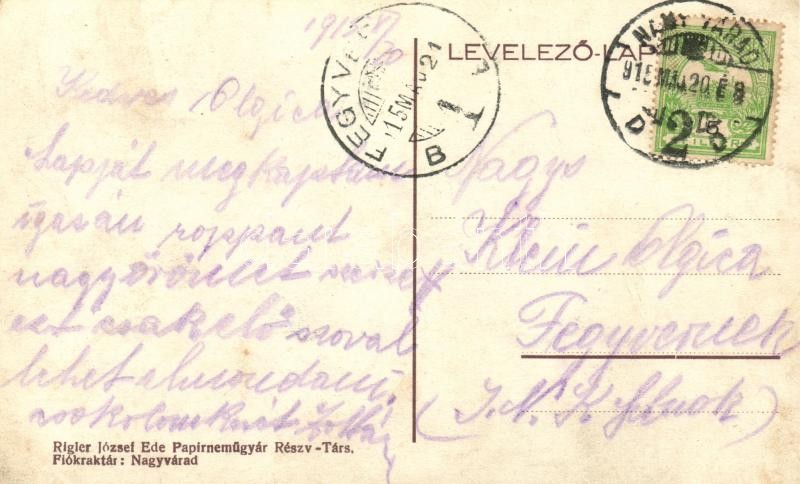 1915 V/20
Kedves Olgica
Lapját megkaptam
igazán roppant
nagy örömet szerzett
ezt csak élő szóval
lehet elmondani.
Rigler József Ede Papirneműgyár Részv-Társ.
Fiókraktár: Nagyvárad
LEVELEZŐ-LAP
FEGYVE
915 MÁJ 21
B 1
NAGYVÁRAD
915 MÁJ 20
2 D
Nagys
Klein Olgica
Fegyvernek
(J. N. K. Szolnok)